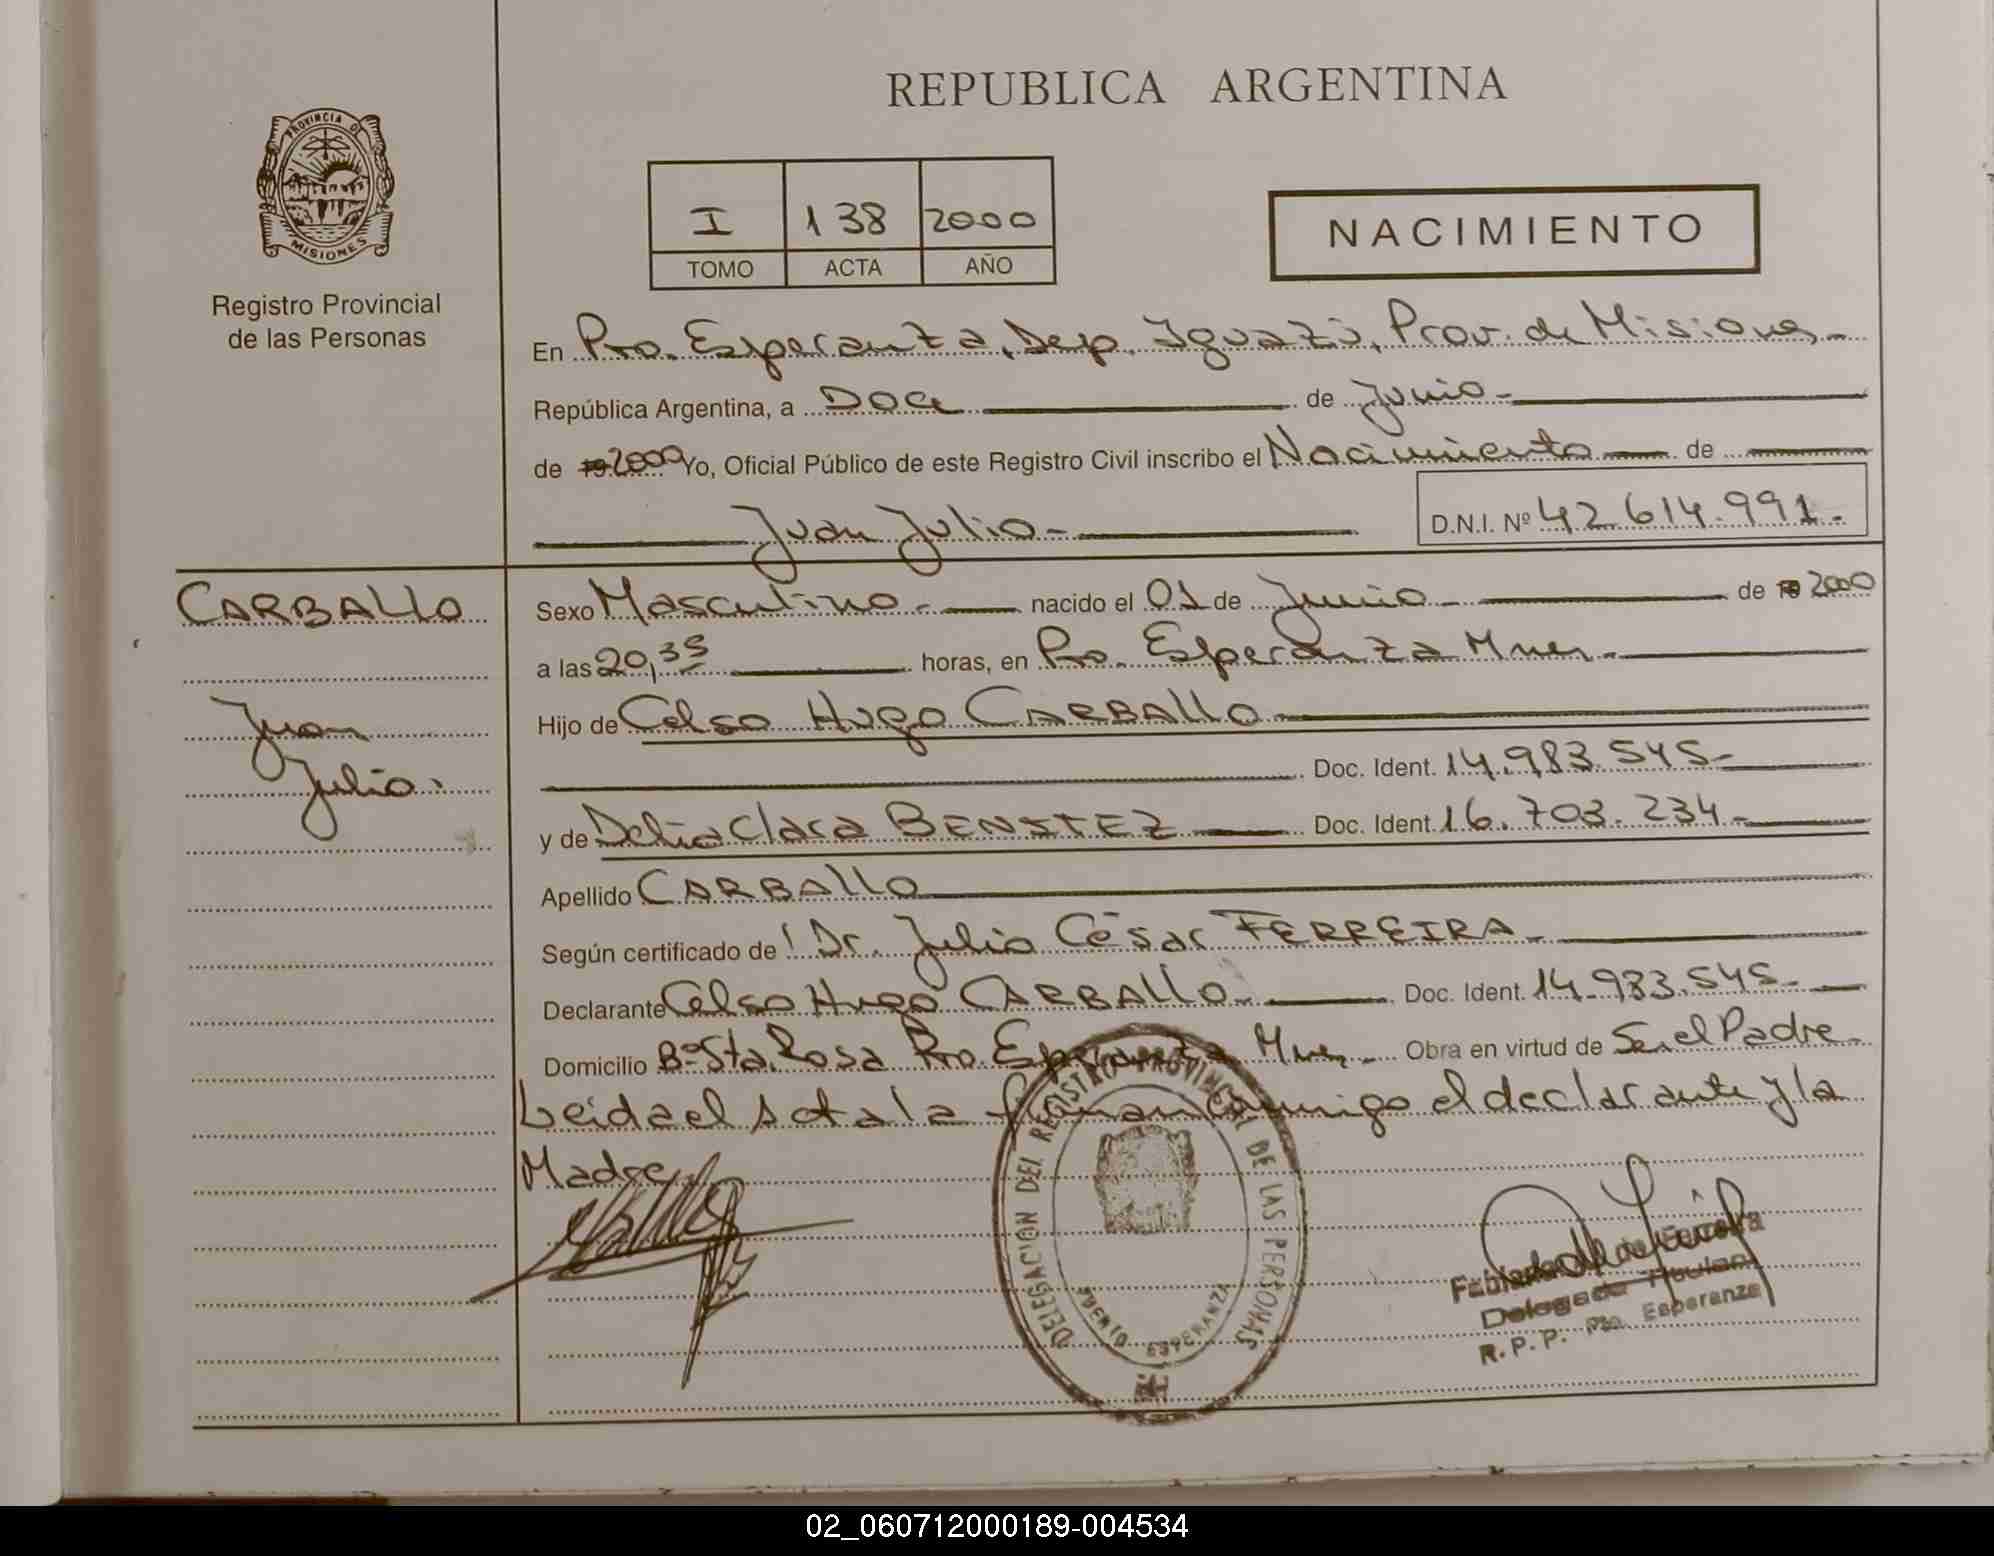 REPUBLICA ARGENTINA
PROVINCIA DE
MISIONES
Registro Provincial
de las Personas
I 138 2000
TOMO ACTA AÑO
NACIMIENTO
En Pto. Esperanza, Dep. Iguazú, Prov. de Misiones.-
República Argentina, a Doce de Junio-
de 19 2000 Yo, Oficial Público de este Registro Civil inscribo el Nacimiento de
Juan Julio- D.N.I. Nº 42.614.991.-
CARBALLO
Juan
Julio.
Sexo Masculino.- nacido el 01 de Junio.- de 19 2000
a las 20,35 horas, en Pto. Esperanza Mnes.-
Hijo de Celso Hugo CARBALLO.-
Doc. Ident. 14.983.545-
y de Delia Clara BENITEZ Doc. Ident. 16.703.234.-
Apellido CARBALLO
Según certificado de Dr. Julio César FERREIRA.-
Declarante Celso Hugo CARBALLO.- Doc. Ident. 14.983.545-
Domicilio Bº Sta. Rosa Pto. Esperanza Mnes.- Obra en virtud de Ser el Padre.-
Leida el Acta la firman conmigo el declarante y la
Madre.
DELEGACION DEL REGISTRO PROVINCIAL DE LAS PERSONAS
PUERTO ESPERANZA
de Ferreira
Delegada Titular
R.P.P. Pto. Esperanza
02_060712000189-004534